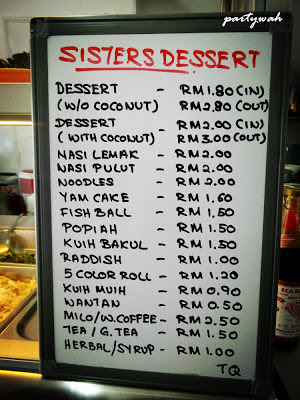 partywah
SISTERS DESSERT
DESSERT - RM1.80 (IN)
(W/O COCONUT) RM2.80 (OUT)
DESSERT - RM2.00 (IN)
(WITH COCONUT) RM3.00 (OUT)
NASI LEMAK - RM2.00
NASI PULUT - RM2.00
NOODLES - RM2.00
YAM CAKE - RM1.60
FISH BALL - RM1.50
POPIAH - RM1.50
KUIH BAKUL - RM1.50
RADDISH - RM1.00
5 COLOR ROLL - RM1.20
KUIH MUIH - RM0.90
WANTAN - RM0.50
MILO/W.COFFEE - RM2.50
TEA/G.TEA - RM1.50
HERBAL/SYRUP - RM1.00
TQ